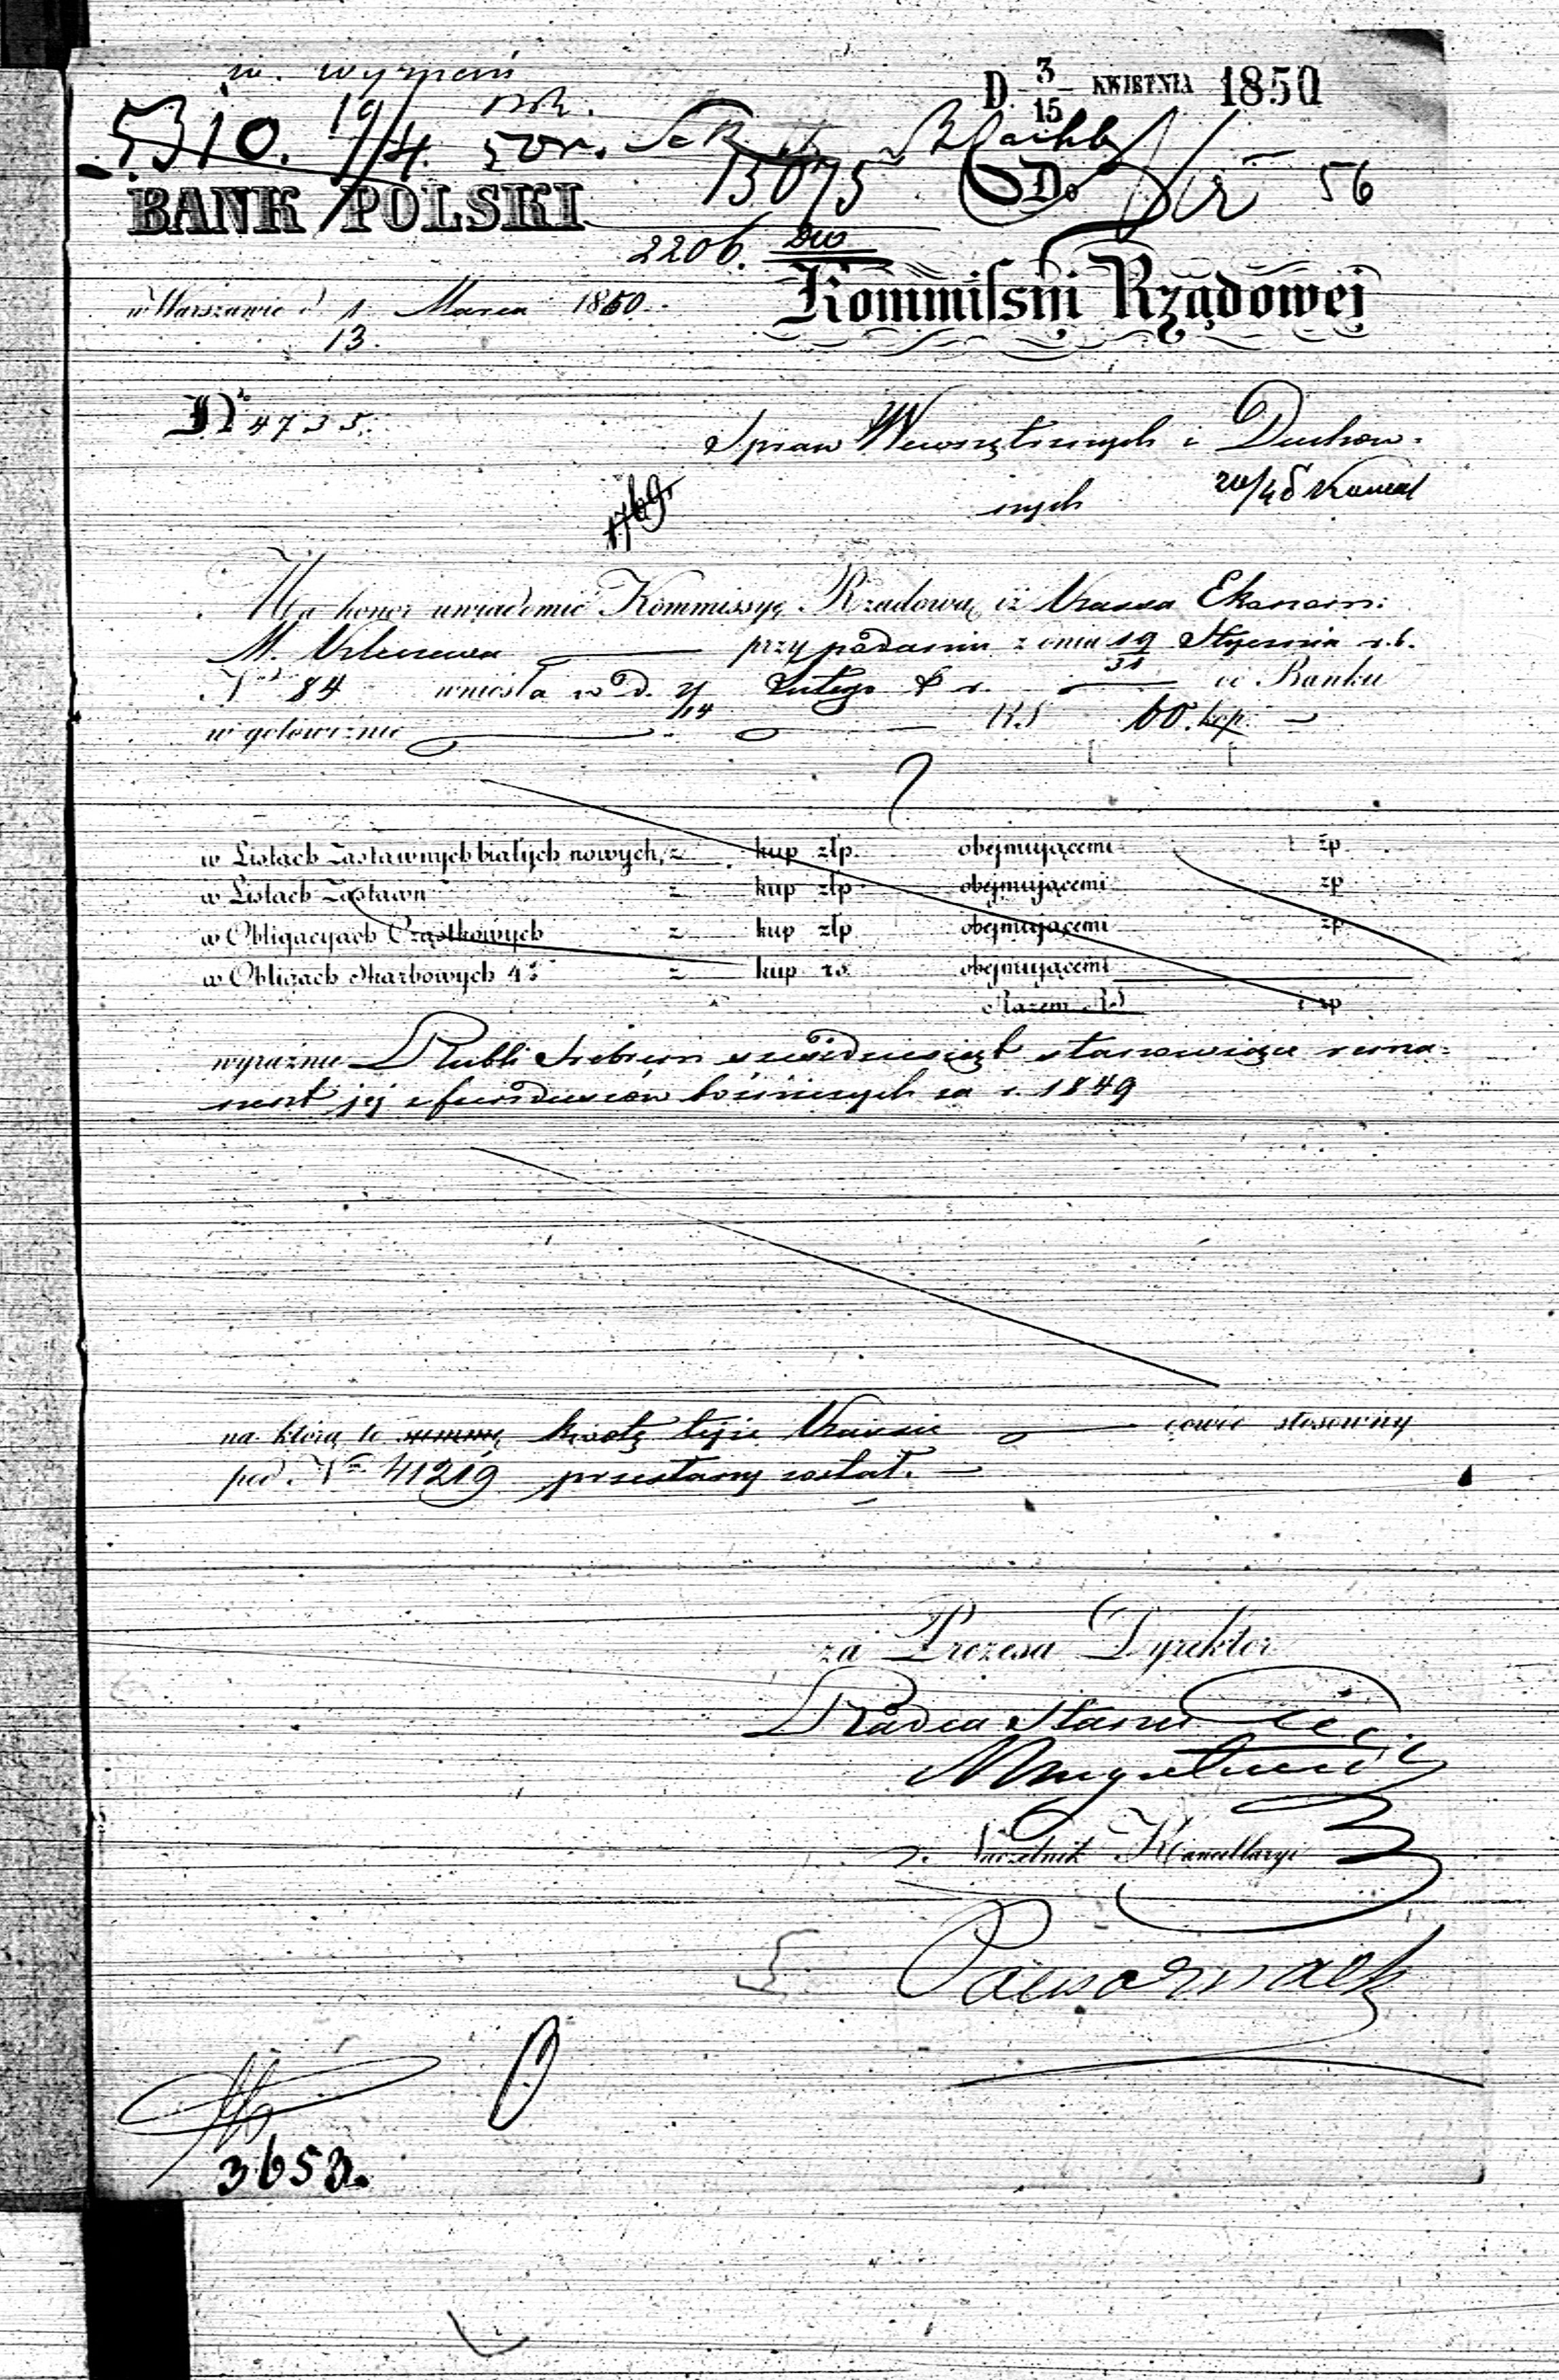 w. wyznań
D. 3/15 KWIETNIA 1850
5310. 19/4. 50 r.
13075
56
BANK POLSKI
Do
2206.
Kommissyi Rządowej
w Warszawie d. 1/13. Marca 1850.
N° 4735.
Spraw Wewnętrznych i Duchow-
nych
1769
Ma honor uwiadomić Kommissyę Rządową iż Kassa Ekonom:
M. przy podaniu z dnia 19/31 Stycznia r. b.
N° 84 wniosła w d. 2/14 Lutego b. r. do Banku
w gotowiźnie RS 60. kop. —
w Listach Zastawnych białych nowych, z kup złp. obejmującemi zp
w Listach Zastawn z kup złp. obejmującemi zp
w Obligacyach Cząstkowych z kup złp obejmującemi zp
w Obligach Skarbowych 4% z kup rs. obejmującemi
Razem RS i zp
wyraźnie Rubli Srebrem sześćdziesiąt stanowiące rema-
nent jej z funduszów bóźniczych za r. 1849
na którą to summę kwotę tejże Kassie dowód stosowny
pod N° 41219 przesłany został. —
za Prezesa Dyrektor
Radca Stanu
Naczelnik Kancellaryi
3653.